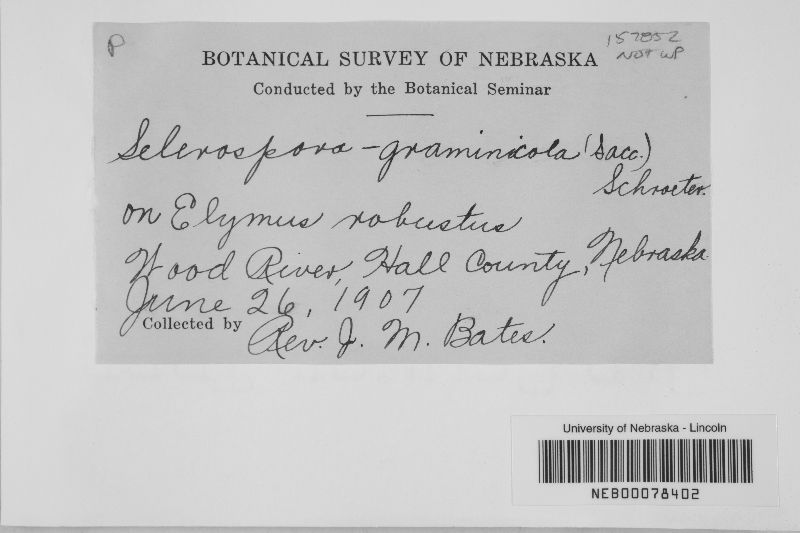 P
157852
NOT WP
BOTANICAL SURVEY OF NEBRASKA
Conducted by the Botanical Seminar
Sclerospora - graminicola (Sacc.)
Schroeter.
on Elymus robustus
Wood River, Hall County, Nebraska
June 26, 1907
Collected by Rev. J. M. Bates.
University of Nebraska - Lincoln
NEB00078402